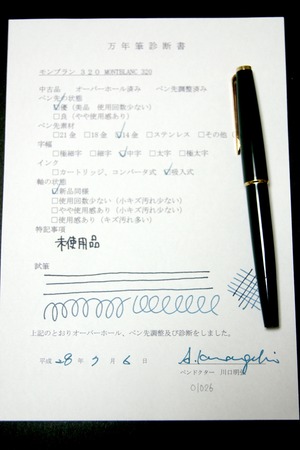 万年筆診断書
モンブラン 320 MONTBLANC 320
中古品 オーバーホール済み ペン先調整済み
ペン先の状態
☑優(美品 使用回数少ない)
□良(やや使用感あり)
ペン先素材
□21金 □18金 ☑14金 □ステンレス □その他(
字幅
□極細字 □細字 ☑中字 □太字 □極太字
インク
□カートリッジ、コンバータ式 ☑吸入式
軸の状態
☑新品同様
□使用回数少ない(小キズ汚れ少ない)
□やや使用感あり(小キズ汚れ少ない)
□使用感あり(キズ汚れ多い)
特記事項
未使用品
試筆
上記のとおりオーバーホール、ペン先調整及び診断をしました。
平成 28 年 7 月 6 日
ペンドクター 川口明弘
01026